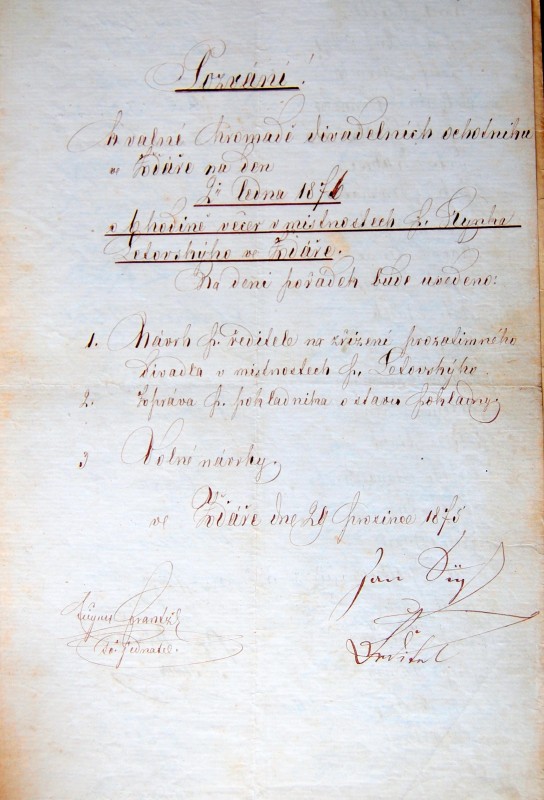 Pozvání!
k valné hromadě divadelních ochotníků
ve Žďáře na den
2ho ledna 1876
o 6 hodině večer v místnostech p. Hynka
Letovského ve Žďáře.
Na dení pořádek bude uvedeno:
1. Návrh p. ředitele na zřízení prozatimného
divadla v místnostech p. Letovského.
2. Zpráva p. pokladníka o stavu pokladny.
3 Volné návrhy.
ve Žďáře dne 29 prozince 1875
Jan
ředitel
jednatel.